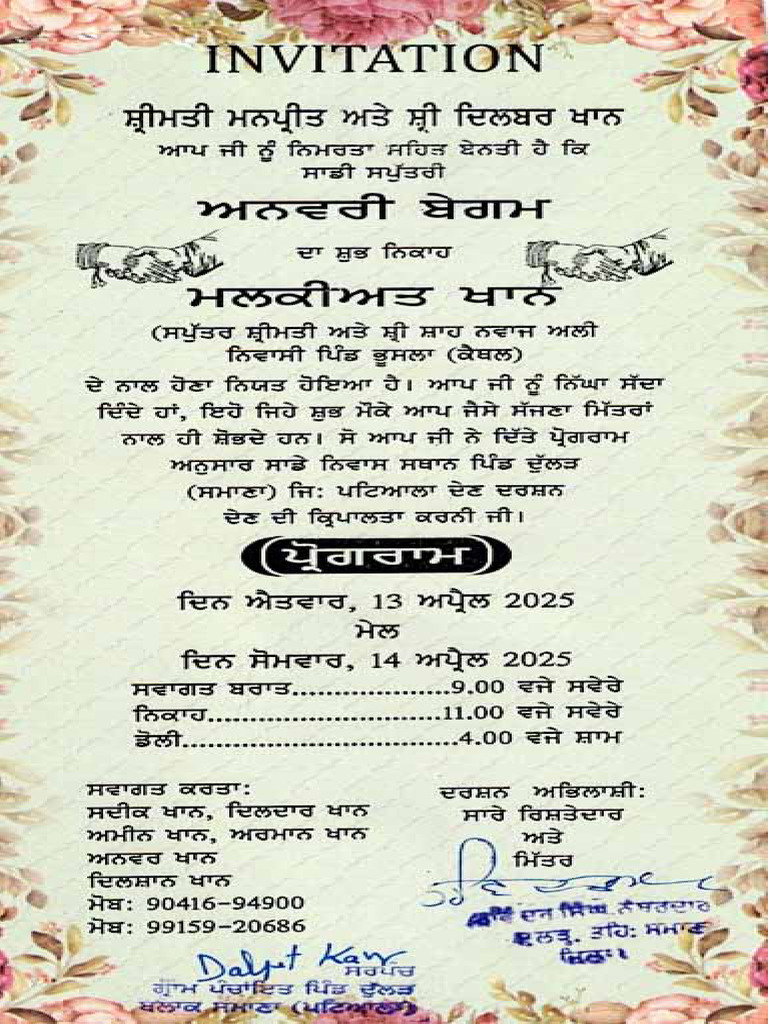 INVITATION
ਸ਼੍ਰੀਮਤੀ ਮਨਪ੍ਰੀਤ ਅਤੇ ਸ਼੍ਰੀ ਦਿਲਬਰ ਖਾਨ
ਆਪ ਜੀ ਨੂੰ ਨਿਮਰਤਾ ਸਹਿਤ ਬੇਨਤੀ ਹੈ ਕਿ
ਸਾਡੀ ਸਪੁੱਤਰੀ
ਅਨਵਰੀ ਬੇਗਮ
ਦਾ ਸ਼ੁਭ ਨਿਕਾਹ
ਮਲਕੀਅਤ ਖਾਨ
(ਸਪੁੱਤਰ ਸ਼੍ਰੀਮਤੀ ਅਤੇ ਸ਼੍ਰੀ ਸ਼ਾਹ ਨਵਾਜ ਅਲੀ
ਨਿਵਾਸੀ ਪਿੰਡ ਭੂਸਲਾ (ਕੈਥਲ)
ਦੇ ਨਾਲ ਹੋਣਾ ਨਿਯਤ ਹੋਇਆ ਹੈ। ਆਪ ਜੀ ਨੂੰ ਨਿੱਘਾ ਸੱਦਾ
ਦਿੰਦੇ ਹਾਂ, ਇਹੋ ਜਿਹੇ ਸ਼ੁਭ ਮੌਕੇ ਆਪ ਜੈਸੇ ਸੱਜਣਾ ਮਿੱਤਰਾਂ
ਨਾਲ ਹੀ ਸ਼ੋਭਦੇ ਹਨ। ਸੋ ਆਪ ਜੀ ਨੇ ਦਿੱਤੇ ਪ੍ਰੋਗਰਾਮ
ਅਨੁਸਾਰ ਸਾਡੇ ਨਿਵਾਸ ਸਥਾਨ ਪਿੰਡ ਦੁੱਲੜ
(ਸਮਾਣਾ) ਜਿ: ਪਟਿਆਲਾ ਦੇਣ ਦਰਸ਼ਨ
ਦੇਣ ਦੀ ਕ੍ਰਿਪਾਲਤਾ ਕਰਨੀ ਜੀ।
(ਪ੍ਰੋਗਰਾਮ)
ਦਿਨ ਐਤਵਾਰ, 13 ਅਪ੍ਰੈਲ 2025
ਮੇਲ
ਦਿਨ ਸੋਮਵਾਰ, 14 ਅਪ੍ਰੈਲ 2025
ਸਵਾਗਤ ਬਰਾਤ...................9.00 ਵਜੇ ਸਵੇਰੇ
ਨਿਕਾਹ............................11.00 ਵਜੇ ਸਵੇਰੇ
ਡੋਲੀ.................................4.00 ਵਜੇ ਸ਼ਾਮ
ਸਵਾਗਤ ਕਰਤਾ:
ਸਦੀਕ ਖਾਨ, ਦਿਲਦਾਰ ਖਾਨ
ਅਮੀਨ ਖਾਨ, ਅਰਮਾਨ ਖਾਨ
ਅਨਵਰ ਖਾਨ
ਦਿਲਸ਼ਾਨ ਖਾਨ
ਮੋਬ: 90416-94900
ਮੋਬ: 99159-20686
ਦਰਸ਼ਨ ਅਭਿਲਾਸ਼ੀ:
ਸਾਰੇ ਰਿਸ਼ਤੇਦਾਰ
ਅਤੇ
ਮਿੱਤਰ
ਸਿੰਘ ਨੰਬਰਦਾਰ
ਤਹਿ: ਸਮਾਣਾ
Daljit Kaur
ਸਰਪੰਚ
ਗ੍ਰਾਮ ਪੰਚਾਇਤ ਪਿੰਡ ਦੁੱਲੜ
ਬਲਾਕ ਸਮਾਣਾ (ਪਟਿਆਲਾ)